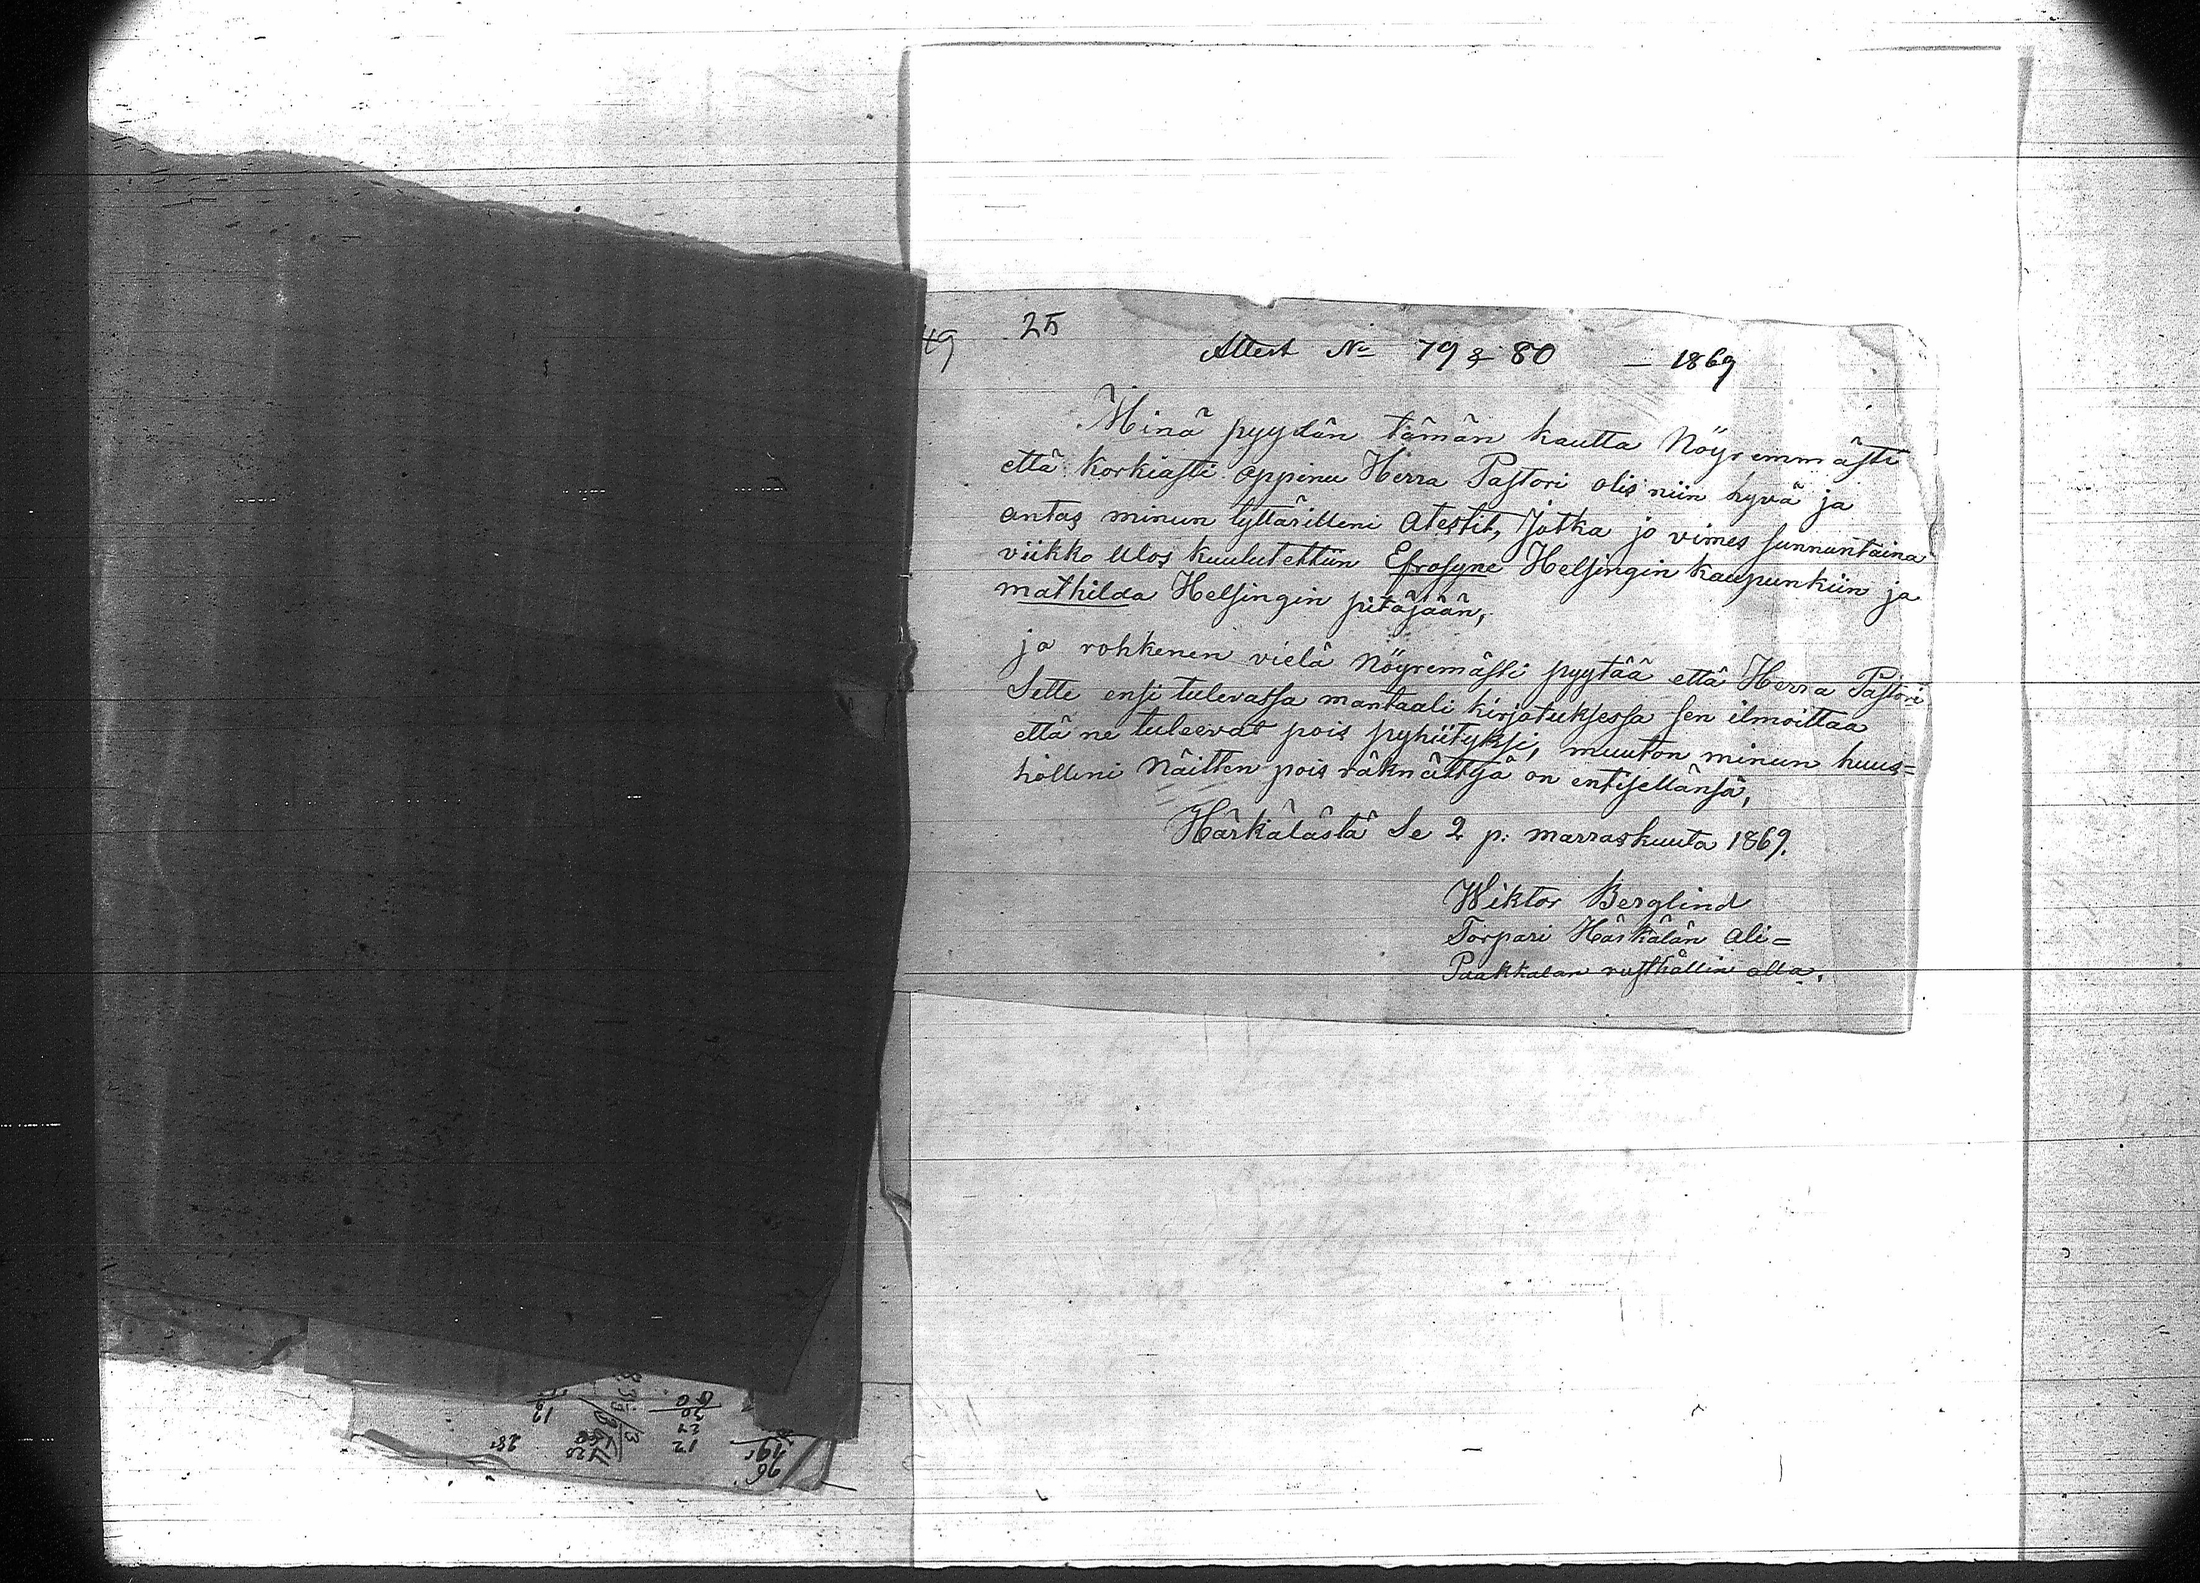 49 25
Attest No 79 & 80 — 1869
Minä pyydän tämän kautta Nöyremmästi
että korkiasti oppinu Herra Pastori olis niin hyvä ja
antas minun tyttärilleni Atestit, Jotka jo vimes sunnuntaina
viikko ulos kuulutettiin Efrosyne Helsingin kaupunkiin ja
mathilda Helsingin pitäjään,
ja rohkenen vielä Nöyremästi pyytää että Herra Pastori
Sille ensi tulevassa mantaali kirjotuksessa sen ilmoittaa
että ne tuleevat pois pyhiityksi, muuton minun huus=
hölleni Näitten pois räknättyä on entisellänsä,
Härkälästä Se 2 p: marraskuuta 1869.
Wiktor Berglind
Torpari Härkälän Ali=
Paakkalan rusthållin alla.
28 19 12 27 30 96 19